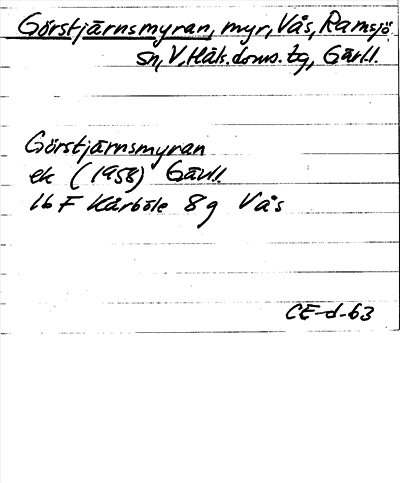 Görstjärnsmyran, myr, Vås, Ramsjö
sn, V. Häls. doms. tg, Gävl.l.
Görstjärnsmyran
ek (1958) Gävl.l.
16 F Kårböle 8 g Vås
CE-d-63